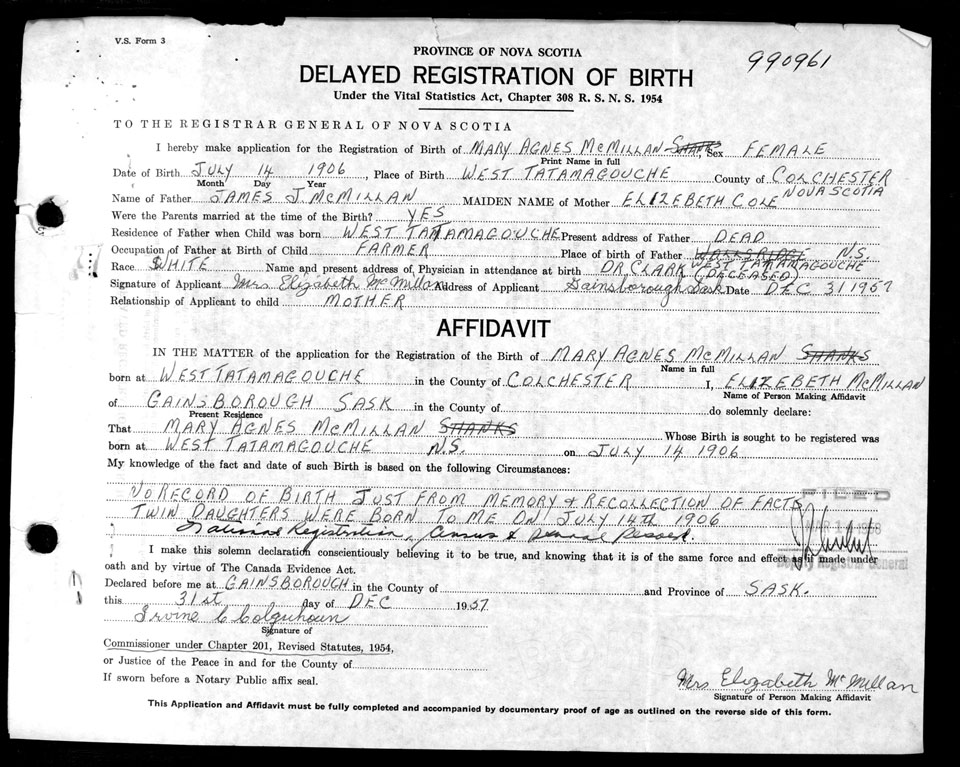 V.S. Form 3
PROVINCE OF NOVA SCOTIA
990961
DELAYED REGISTRATION OF BIRTH
Under the Vital Statistics Act, Chapter 308 R. S. N. S. 1954
TO THE REGISTRAR GENERAL OF NOVA SCOTIA
I hereby make application for the Registration of Birth of MARY AGNES MCMILLAN SHANKS, Sex FEMALE
Print Name in full
Date of Birth JULY 14 1906, Place of Birth WEST TATAMAGOUCHE County of COLCHESTER
Month Day Year NOVA SCOTIA
Name of Father JAMES J. MCMILLAN MAIDEN NAME of Mother ELIZEBETH COLE
Were the Parents married at the time of the Birth? YES
Residence of Father when Child was born WEST TATAMAGOUCHE Present address of Father DEAD
Occupation of Father at Birth of Child FARMER Place of birth of Father N.S.
WEST TATAMAGOUCHE
Race WHITE Name and present address of Physician in attendance at birth DR CLARK (DECEASED)
Signature of Applicant Mrs Elizabeth McMillan Address of Applicant Gainsborough Sask Date DEC 31 1957
Relationship of Applicant to child MOTHER
AFFIDAVIT
IN THE MATTER of the application for the Registration of the Birth of MARY AGNES MCMILLAN SHANKS
Name in full
born at WEST TATAMAGOUCHE in the County of COLCHESTER I, ELIZEBETH MCMILLAN
Name of Person Making Affidavit
of GAINSBOROUGH SASK in the County of do solemnly declare:
Present Residence
That MARY AGNES MCMILLAN SHANKS Whose Birth is sought to be registered was
born at WEST TATAMAGOUCHE N.S. on JULY 14 1906
My knowledge of the fact and date of such Birth is based on the following Circumstances:
NO RECORD OF BIRTH JUST FROM MEMORY & RECOLLECTION OF FACTS
TWIN DAUGHTERS WERE BORN TO ME ON JULY 14TH 1906
National Registration, Census &
I make this solemn declaration conscientiously believing it to be true, and knowing that it is of the same force and effect as if made under
oath and by virtue of The Canada Evidence Act.
Deputy Registrar General
Declared before me at GAINSBOROUGH in the County of and Province of SASK.
this 31st day of DEC 1957
Irvine C Colquhoun
Signature of
Commissioner under Chapter 201, Revised Statutes, 1954,
or Justice of the Peace in and for the County of
If sworn before a Notary Public affix seal.
Mrs Elizabeth McMillan
Signature of Person Making Affidavit
This Application and Affidavit must be fully completed and accompanied by documentary proof of age as outlined on the reverse side of this form.